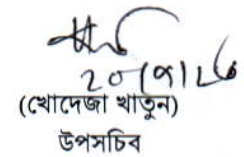 ২০।৭।১৬
(খোদেজা খাতুন)
উপসচিব